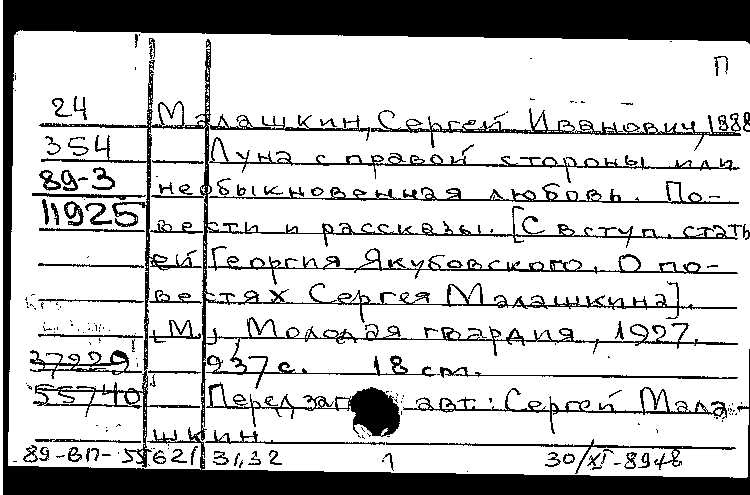 П
24 Малашкин, Сергей Иванович, 1988
354 Луна с правой стороны или
89-3 необыкновенная любовь. По-
11925 вести и рассказы. [С вступ. стать
ей Георгия Якубовского. О по-
вестях Сергея Малашкина].
[М.], Молодая гвардия, 1927.
37929 237 с. 18 см.
55740 Перед загл. авт.: Сергей Мала-
шкин.
89-ВП-55621 31,32 1 30/XI-8948